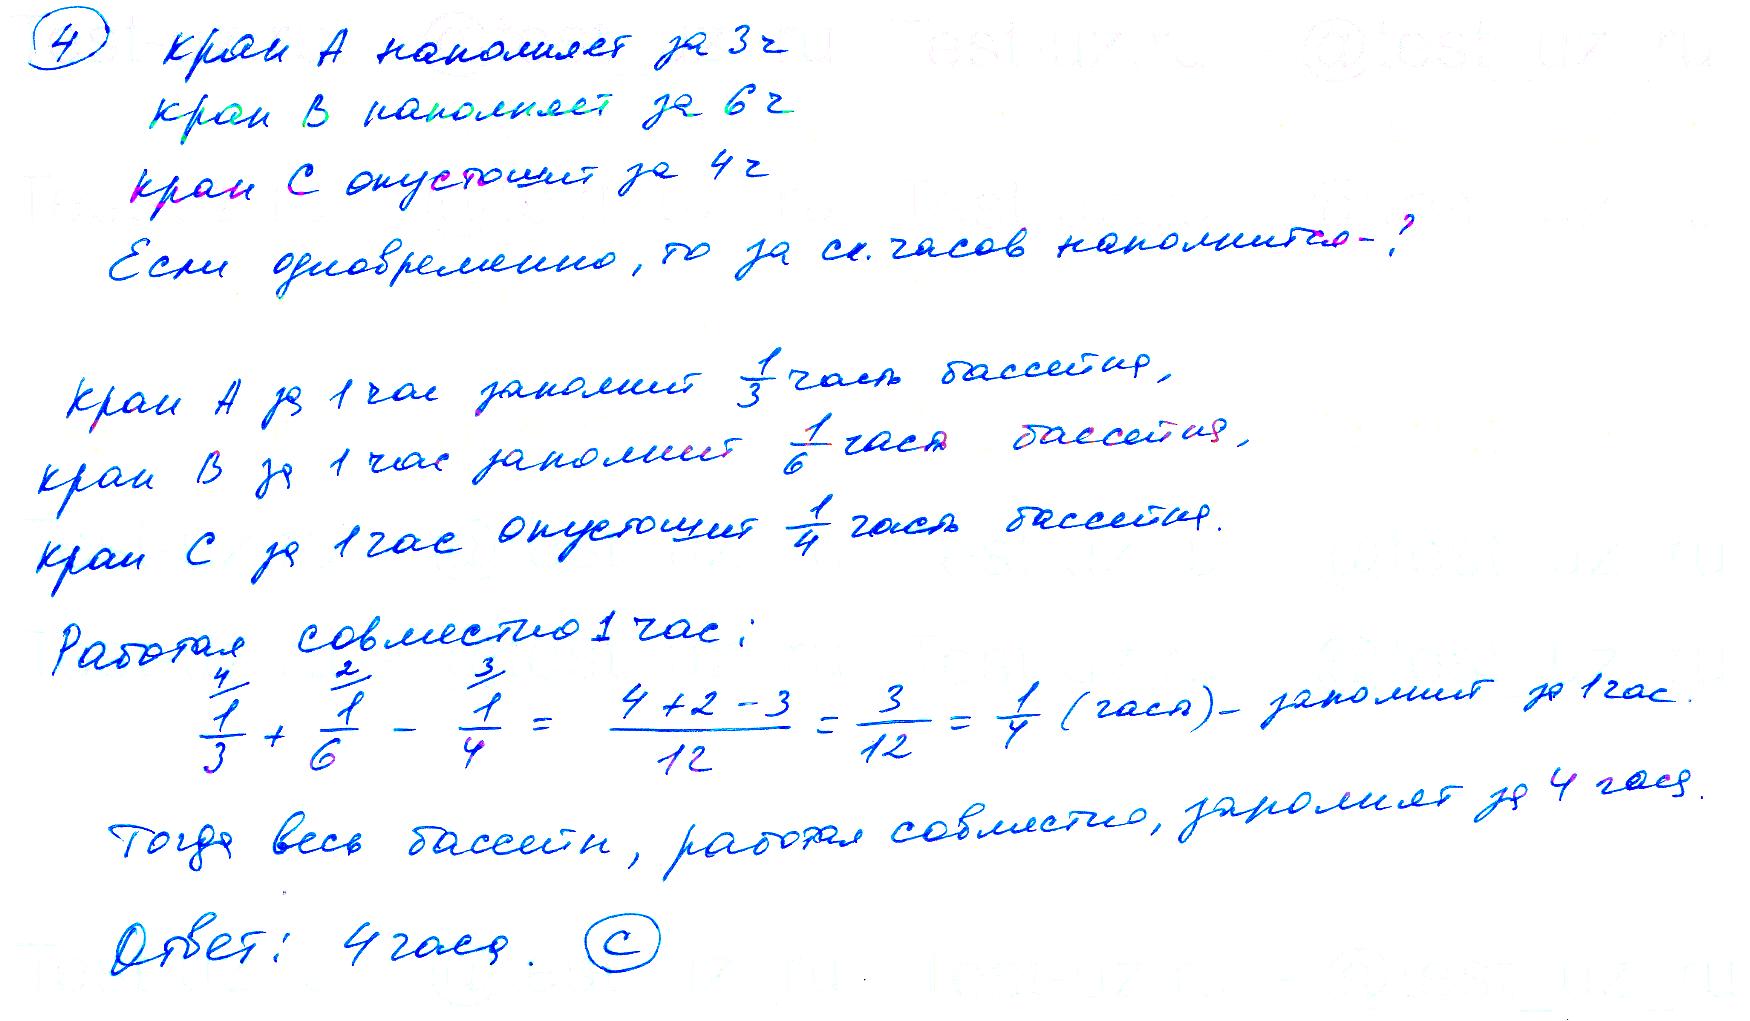 4 Кран А наполняет за 3ч
Кран В наполняет за 6ч
Кран С опустошит за 4ч
Если одновременно, то за ск. часов наполнится-?
Кран А за 1 час заполнит 1/3 часть бассейна,
Кран В за 1 час заполнит 1/6 часть бассейна,
Кран С за 1 час опустошит 1/4 часть бассейна.
Работая совместно 1 час:
4/ 2/ 3/
1/3 + 1/6 - 1/4 = (4+2-3)/12 = 3/12 = 1/4 (часть) - заполнит за 1 час.
Тогда весь бассейн, работая совместно, заполнят за 4 часа.
Ответ: 4 часа. C